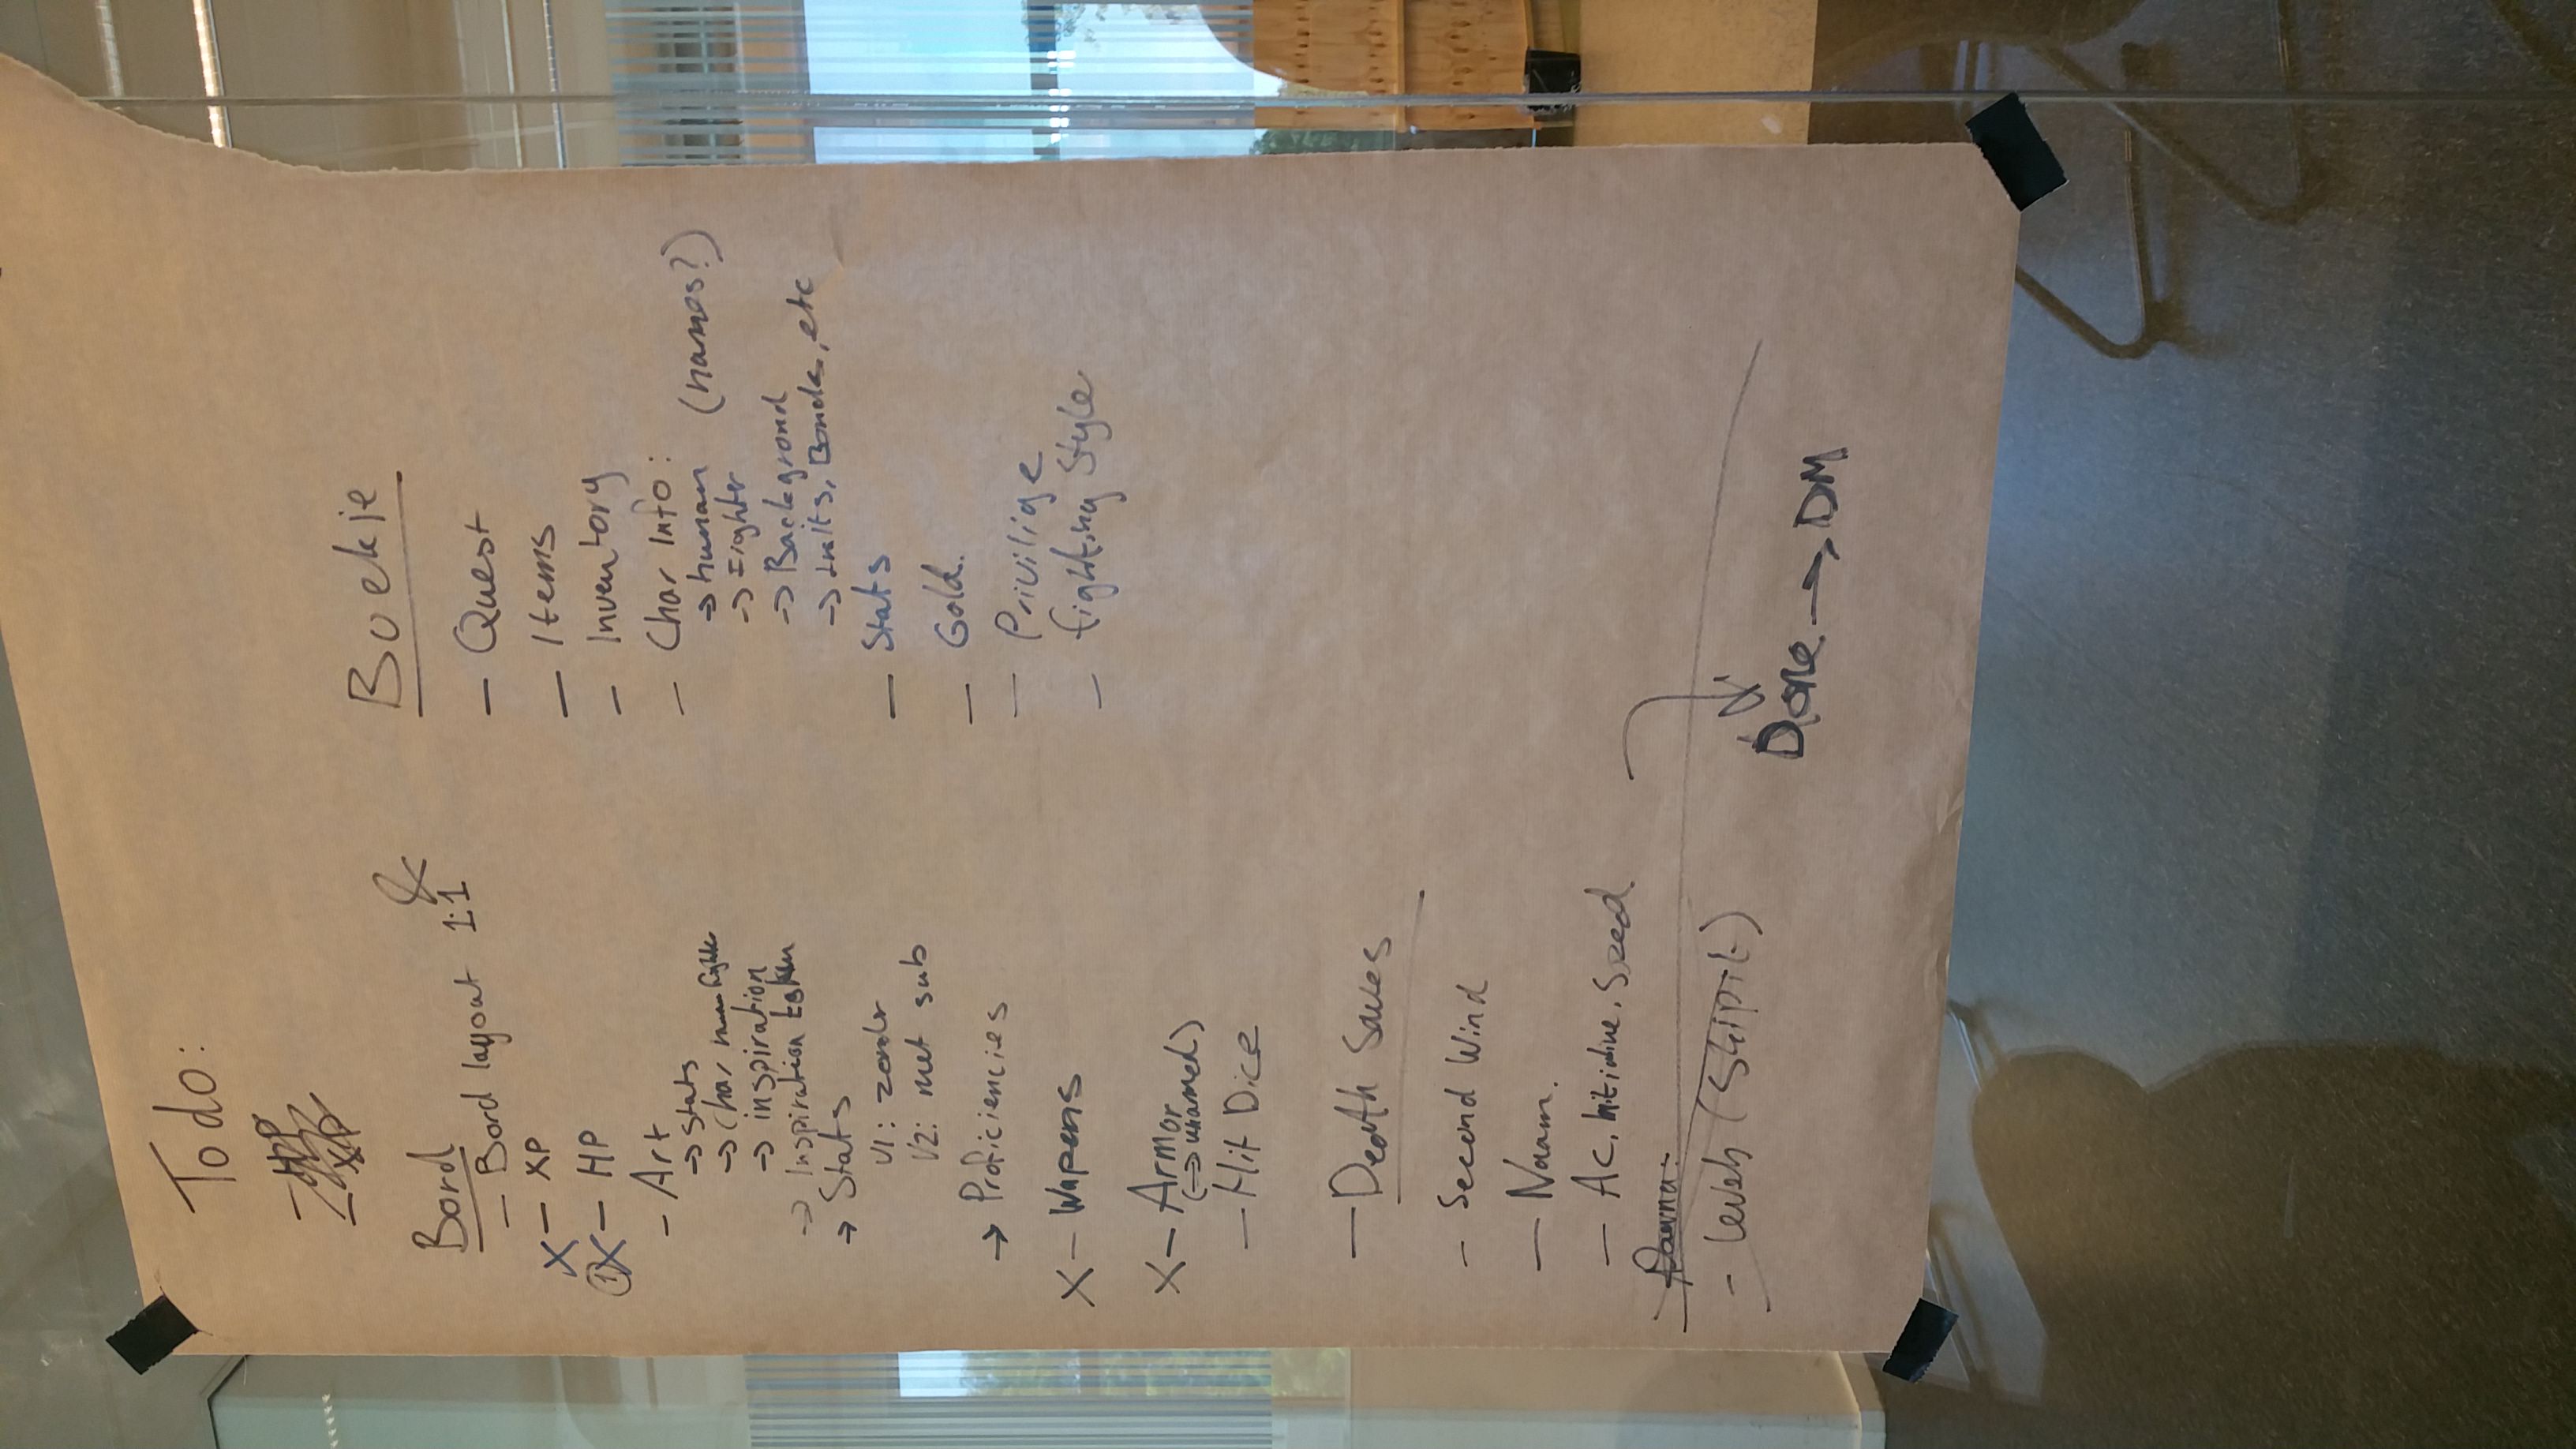 Todo:
- HP
- XP
Bord
- Bord layout 1:1 &
X - XP
1 X - HP
- Art
-> Stats
-> Char human fighter
-> inspiration
-> Inspiration token
-> Stats
V1: zonder
V2: met sub
-> Proficiencies
X - Wapens
X - Armor
(-> unarmed)
- Hit Dice
- Death Saves
- Second Wind
- Naam.
- AC, Initiative, Speed
Daarna:
- levels (Skip it)
Boekje
- Quest
- Items
- Inventory
- Char Info:
-> human (names?)
-> Fighter
-> Backgrond
-> traits, Bonds, etc
- Stats
- Gold.
- Privilige
- fighting Style
Done -> DM